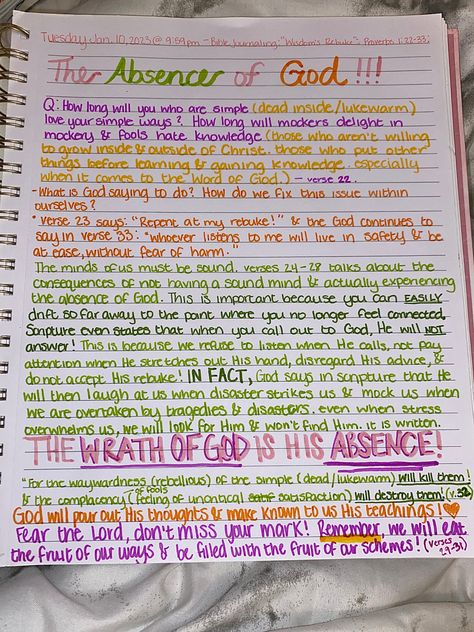 Tuesday Jan. 10, 2023 @ 9:59pm - Bible Journaling: "Wisdom's Rebuke": Proverbs 1:22-33;
The Absence of God!!!
Q: How long will you who are simple (dead inside/lukewarm)
love your simple ways? How long will mockers delight in
mockery & fools hate knowledge (those who aren't willing
to grow inside & outside of Christ. those who put other
things before learning & gaining knowledge. especially
when it comes to the Word of God.) - verse 22.
- What is God saying to do? How do we fix this issue within
ourselves?
* verse 23 says: "Repent at my rebuke!" & the God continues to
say in verse 33: "Whoever listens to me will live in safety & be
at ease, without fear of harm."
The minds of us must be sound. verses 24-28 talks about the
consequences of not having a sound mind & actually experiencing
the absence of God. This is important because you can EASILY
drift so far away to the point where you no longer feel connected.
Scripture even states that when you call out to God, He will NOT
answer! This is because we refuse to listen when He calls, not pay
attention when He stretches out His hand, disregard His advice, &
do not accept His rebuke! IN FACT, God says in scripture that He
will then laugh at us when disaster strikes us & mock us when
we are overtaken by tragedies & disasters. even when stress
overwhelms us, we will look for Him & won't find Him. it is written.
THE WRATH OF GOD IS HIS ABSENCE!
"For the waywardness (rebellious) of the simple (dead/lukewarm) will kill them!
& the complacency of fools (feeling of unontical satisfaction) will destroy them! (v.32)
God will pour out His thoughts & make known to us His teachings!
Fear the Lord, don't miss your mark! Remember, we will eat
the fruit of our ways & be filled with the fruit of our schemes! (verses 29-31)